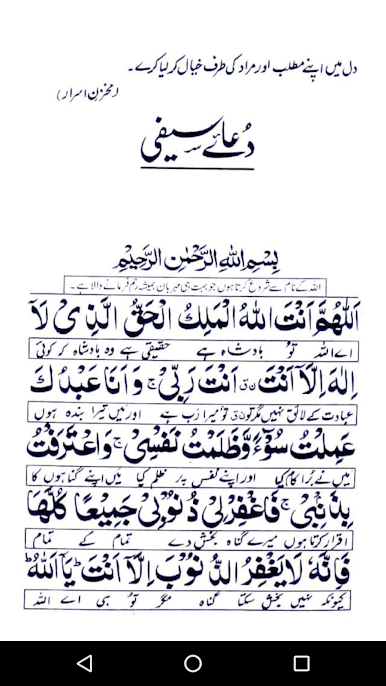 دل میں اپنے مطلب اور مراد کی طرف خیال کر لیا کرے۔
(مخزن اسرار)
دُعائے سیفی
بِسْمِ اللهِ الرَّحْمٰنِ الرَّحِيْمِ
اللہ کے نام سے شروع کرتا ہوں جو بہت ہی مہربان ہمیشہ رحم فرمانے والا ہے۔
اَللّٰهُمَّ اَنْتَ اللهُ الْمَلِكُ الْحَقُّ الَّذِىْ لَآ
اے اللہ تُو بادشاہ ہے حقیقی ہے وہ بادشاہ کہ کوئی
اِلٰهَ اِلَّآ اَنْتَ اَنْتَ رَبِّىْ ج وَاَنَا عَبْدُكَ
عبادت کے لائق نہیں مگر تُو تُو میرا رب ہے اور میں تیرا بندہ ہوں
عَمِلْتُ سُوْٓءً وَّظَلَمْتُ نَفْسِىْ ج وَاعْتَرَفْتُ
میں نے بُرا کام کیا اور اپنے نفس پر ظلم کیا میں اپنے گناہوں کا
بِذَنْبِىْ ج فَاغْفِرْلِىْ ذُنُوْبِىْ جَمِيْعًا كُلَّهَا
اقرار کرتا ہوں میرے گناہ بخش دے تمام کے تمام
فَاِنَّهٗ لَا يَغْفِرُ الذُّنُوْبَ اِلَّآ اَنْتَ ط يَآ اَللهُ ط
کیونکہ نہیں بخش سکتا گناہ مگر تُو ہی اے اللہ